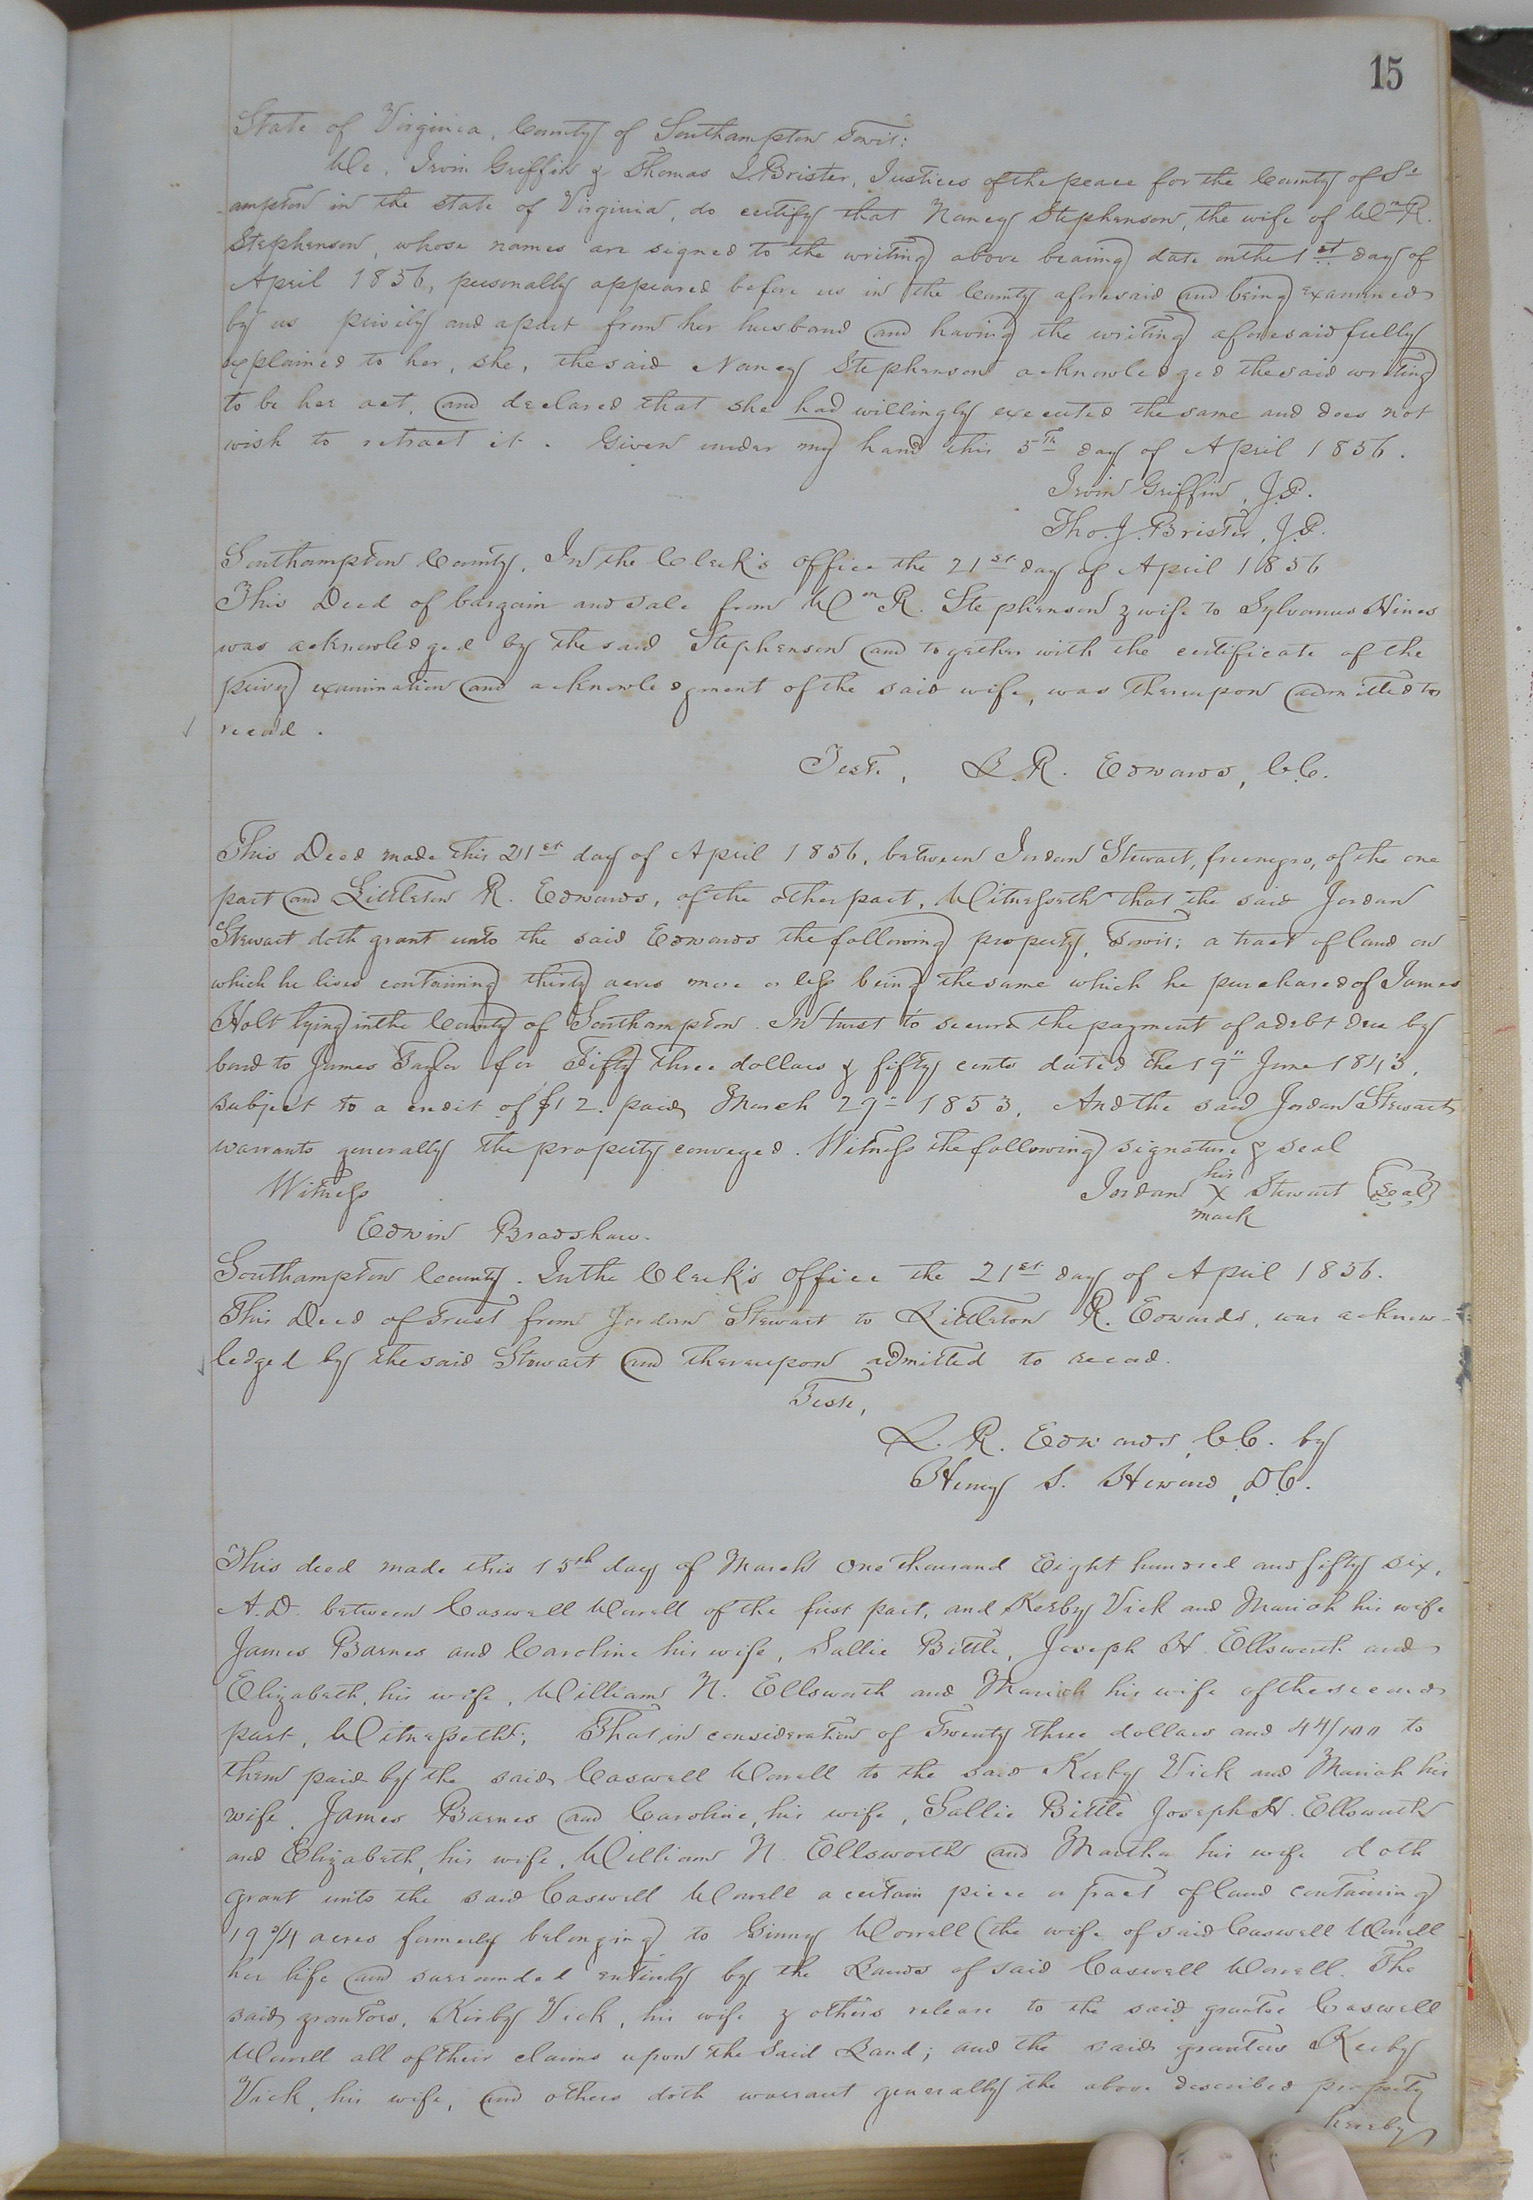 15
State of Virginia, County of Southampton Towit:
We, Irvin Griffin & Thomas J. Brister, Justices of the peace for the County of So
ampton in the state of Virginia, do certify that Nancy Stephenson, the wife of Wm R.
Stephenson, whose names are signed to the writing above bearing date on the 1st day of
April 1856, personally appeared before us in the County aforesaid and being examined
by us privily and apart from her husband and having the writing aforesaid fully
explained to her, she, the said Nancy Stephenson acknowledged the said writing
to be her act, and declared that she had willingly executed the same and does not
wish to retract it. Given under my hand this 5th day of April 1856.
Irvin Griffin, J.P.
Tho. J. Brister, J.P.
Southampton County, In the Clerk's office the 21st day of April 1856
This Deed of bargain and sale from Wm R. Stephenson & wife to Sylvanus Hines
was acknowledged by the said Stephenson and together with the certificate of the
privy examination and acknowledgment of the said wife, was thereupon admitted to
record.
Teste, L. R. Edwards, C.C.
This Deed made this 21st day of April 1856, between Jordan Stewart, free negro, of the one
part and Littleton R. Edwards, of the other part, Witnesseth that the said Jordan
Stewart doth grant unto the said Edwards the following property, Towit; a tract of land on
which he lives containing thirty acres more or less being the same which he purchased of James
Holt lying in the County of Southampton. In trust to secure the payment of a debt due by
bond to James Taylor for Fifty three dollars & fifty cents dated the 19" June 1843,
subject to a credit of $12. paid March 29" 1853. And the said Jordan Stewart
warrants generally the property conveyed. Witness the following signature & seal
Witness
Jordan his X mark Stewart (Seal)
Edwin Bradshaw.
Southampton County. In the Clerk's office the 21st day of April 1856.
This Deed of Trust from Jordan Stewart to Littleton R. Edwards, was acknow-
ledged by the said Stewart and thereupon admitted to record.
Teste,
L. R. Edwards, C.C. by
Henry S. , D.C.
This deed made this 15th day of March One thousand Eight hundred and fifty six,
A.D. between Caswell Worrell of the first part, and Kerby Vick and Mariah his wife
James Barnes and Caroline his wife, Sallie Bittle, Joseph H. Ellsworth and
Elizabeth, his wife, William N. Ellsworth and Mariah his wife of the second
part, Witnesseth; That in consideration of Twenty three dollars and 44/100 to
them paid by the said Caswell Worrell to the said Kerby Vick and Mariah his
wife, James Barnes and Caroline, his wife, Sallie Bittle Joseph H. Ellsworth
and Elizabeth, his wife, William N. Ellsworth and Martha his wife doth
grant unto the said Caswell Worrell a certain piece or tract of land containing
19 3/4 acres formerly belonging to Ginny Worrell (the wife of said Caswell Worrell
her life and surrounded entirely by the Lands of said Caswell Worrell. The
said grantors, Kirby Vick, his wife & others release to the said grantee Caswell
Worrell all of their claims upon the said Land; and the said grantors Kerby
Vick, his wife, and others doth warrant generally the above described property
hereby